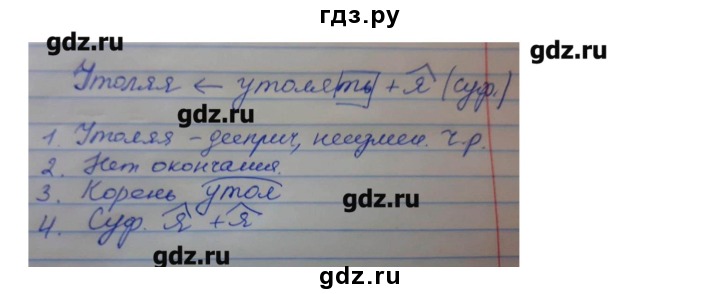 гдз.ру
gdz.ru gdz.ru
Утоляя ← утолять + я (суф.)
gdz.ru
1. Утоляя – дееприч, неизмен. ч.р.
2. Нет окончания.
3. Корень утол
gdz.ru
4. Суф. я + я
gdz.ru
gdz.ru